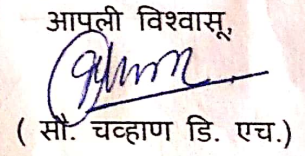 आपली विश्वासू,
( सौ. चव्हाण डि. एच.)